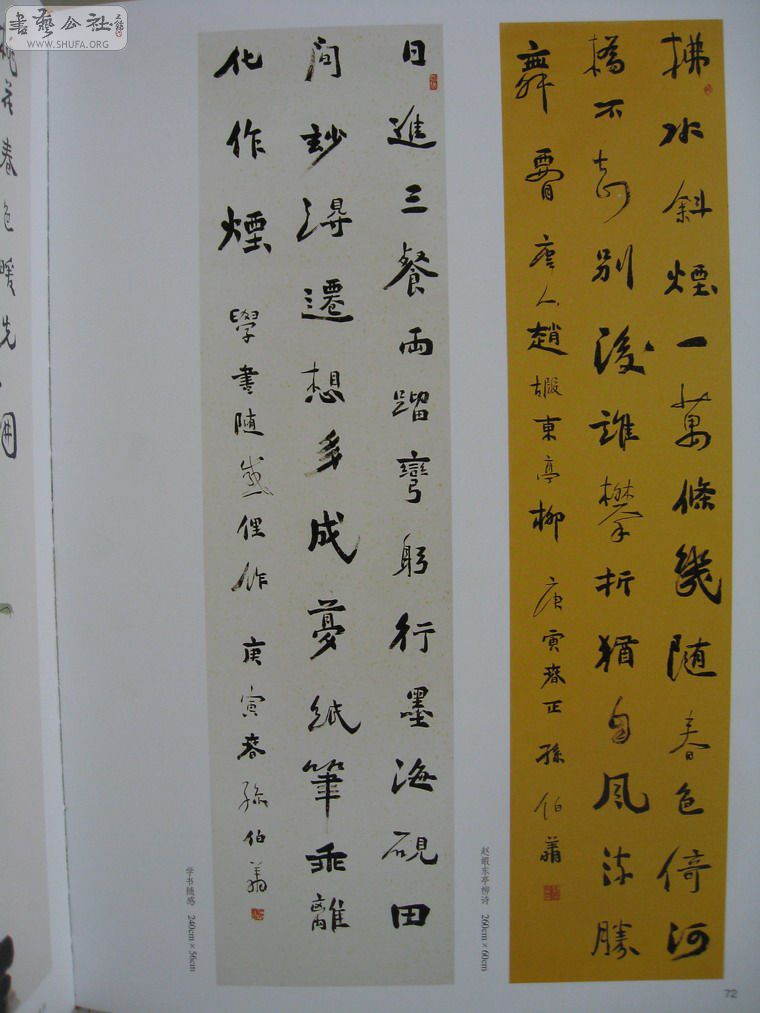 書藝公社
www.SHUFA.ORG
拂水斜煙一萬條幾隨春色倚河
橋不知別後誰攀折猶自風流勝
舞腰 唐人趙嘏東亭柳 庚寅春正 孫伯翔
赵嘏东亭柳诗 260cm×60cm
日進三餐兩蹓彎躬行墨海硯田
間妙得遷想多成夢紙筆乖離
化作煙 學書隨感俚作 庚寅春孫伯翔
学书随感 240cm×56cm
花春色暖先開
72